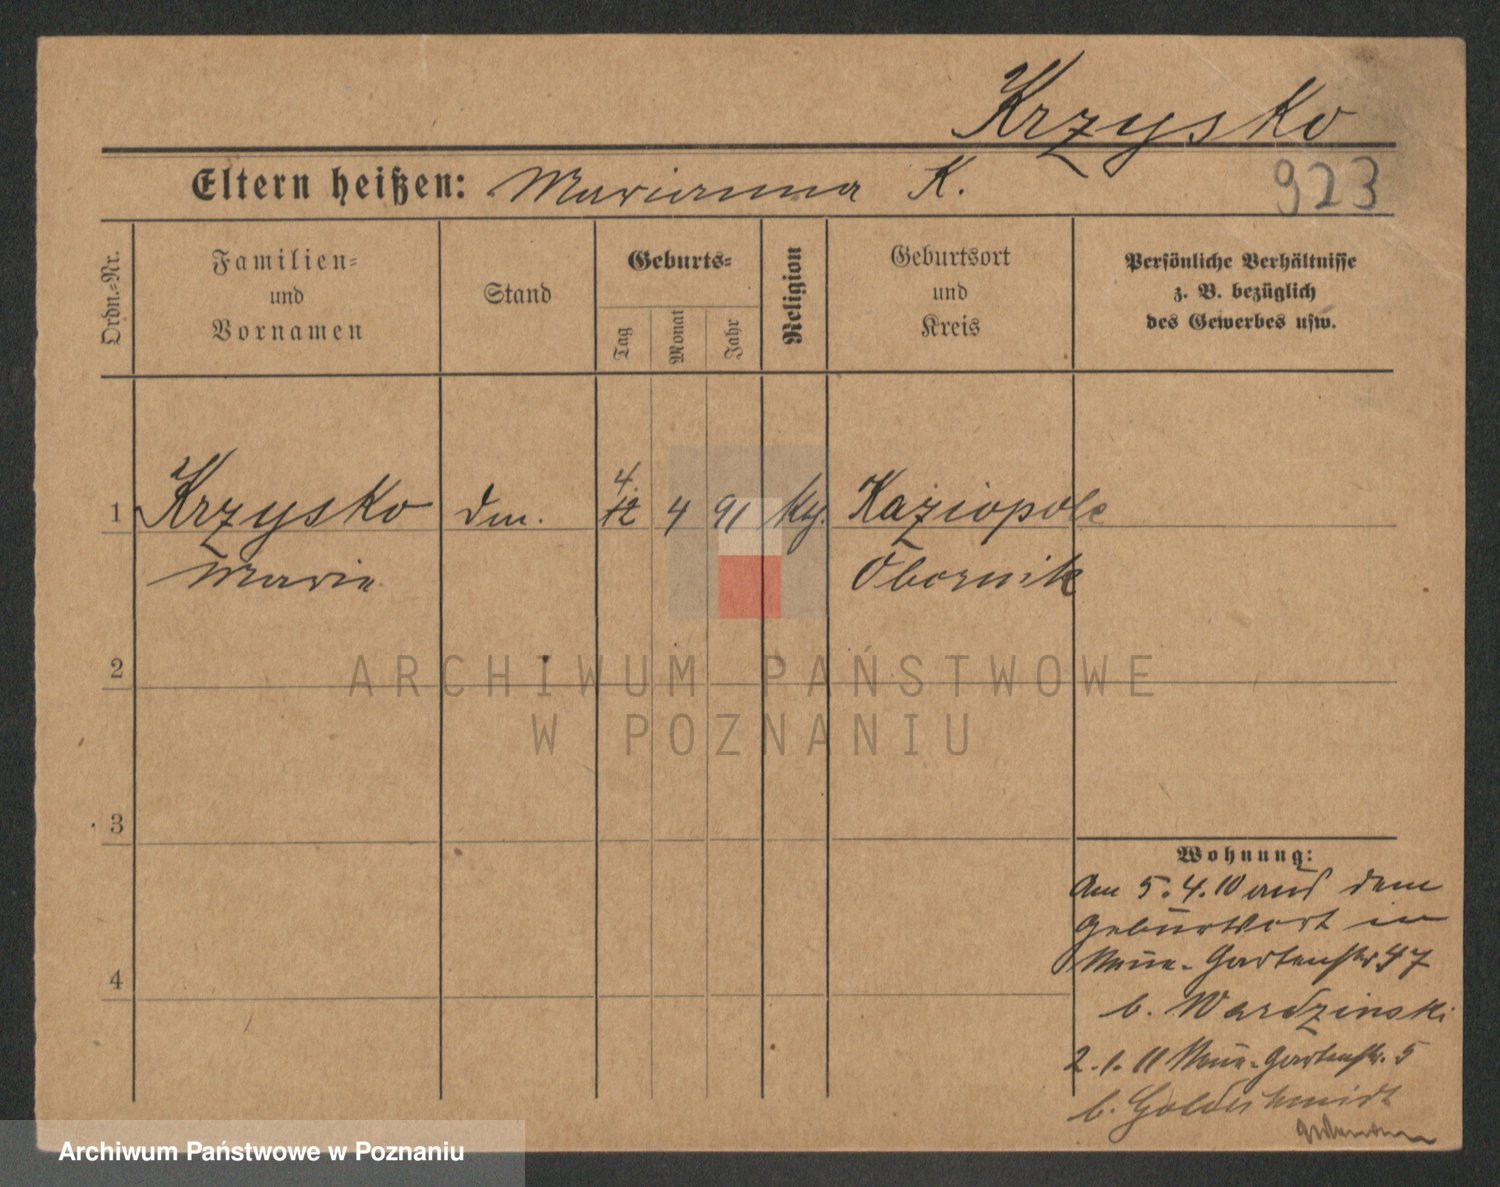 Krzysko
Eltern heißen: Marianna K.
923
Ordn.-Nr.
Familien-
und
Vornamen
Stand
Geburts-
Tag
Monat
Jahr
Religion
Geburtsort
und
Kreis
Persönliche Verhältnisse
z. B. bezüglich
des Gewerbes usw.
4.
1 Krzysko 12 4 91 Kaziopole
Marie Obornik
2
ARCHIWUM PAŃSTWOWE
W POZNANIU
3
Wohnung:
Am 5.4.10 aus dem
Geburtsort in
Neue-Gartenstr. 47
b. Wardzinski
4
2.1.11 Neue-Gartenstr. 5
b. Goldschmidt
Archiwum Państwowe w Poznaniu